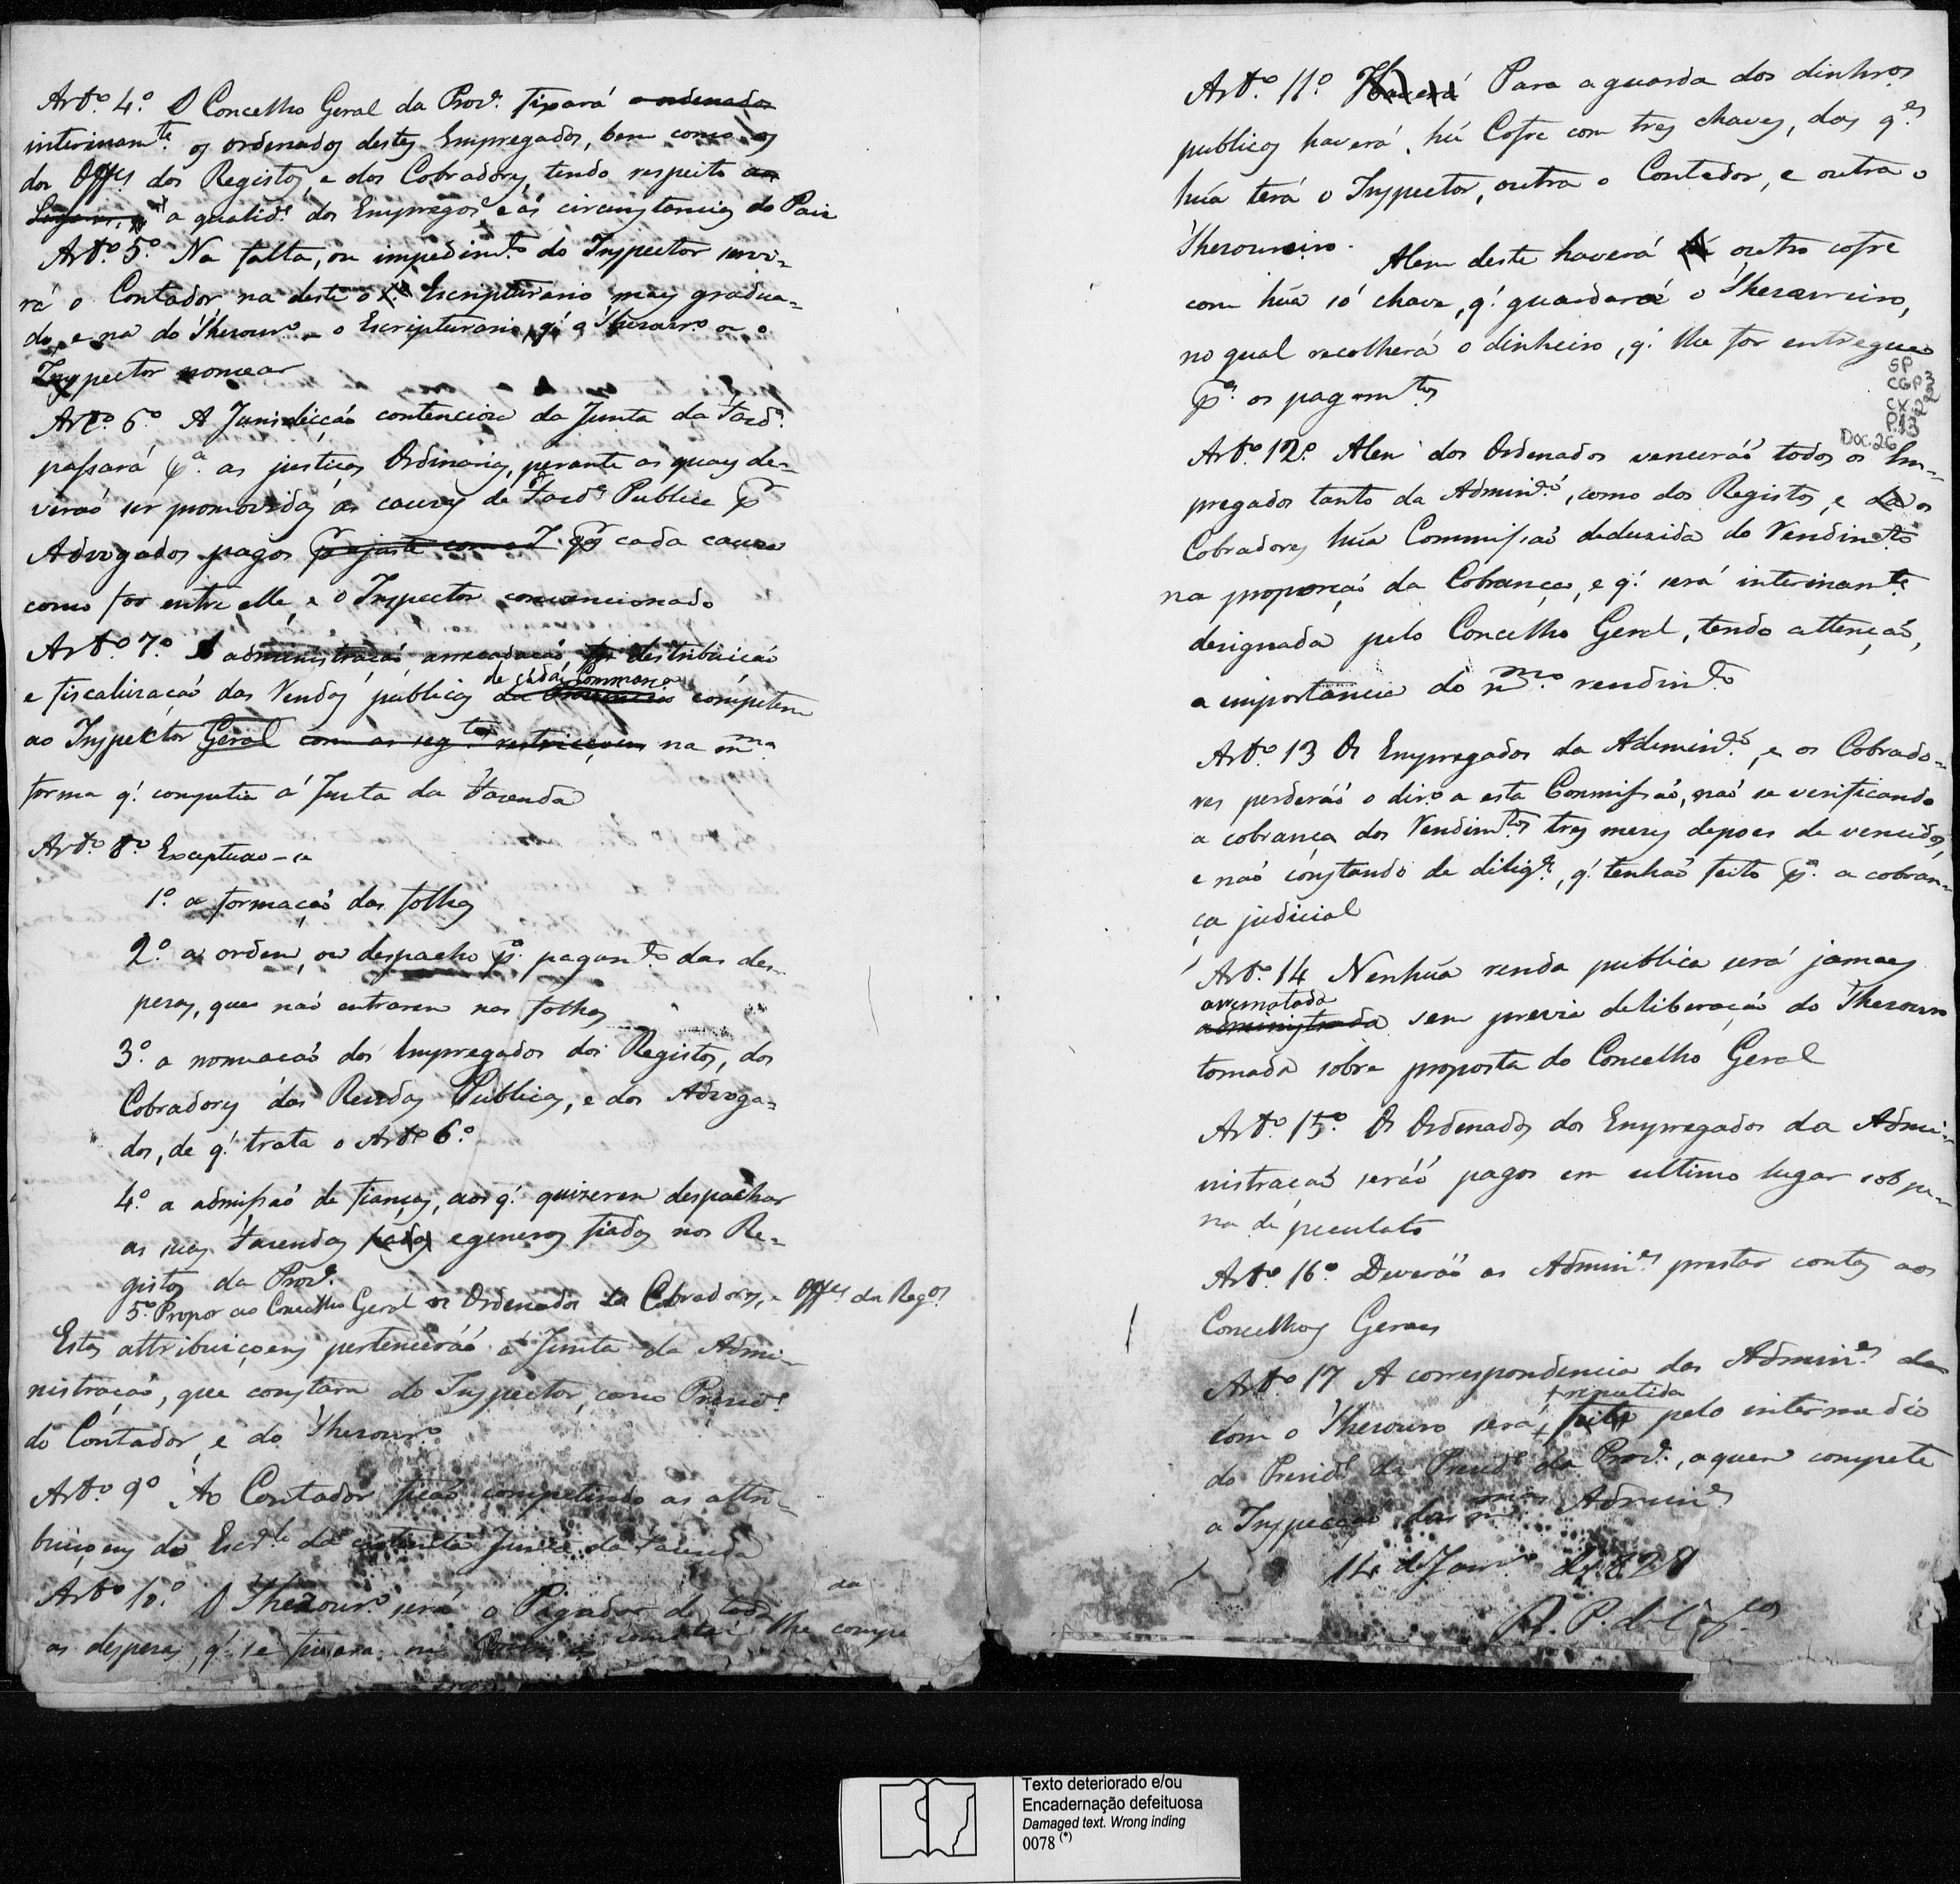 Artº. 4.º O Concelho Geral da Prov.ª fixará o ordenados
interinam.te os ordenados destes Empregados, bem como os
dos Off.es dos Registos, e dos Cobradores, tendo respeito ao
Lugares, a qualid.e dos Empregos e ás circunstancias do Paiz
Artº. 5.º Na falta, ou impedim.to do Inspector servi-
rá o Contador na deste o Escripturario mais gradua-
do, e na do Thesour.º o Escripturario, q.' o Thesour.º ou o
Inspector nomear
Artº. 6.º A Jurisdicção contenciosa da Junta da Fazd.ª
passará p.ª as justiças Ordinarias, perante as quaes de-
verão ser promovidas as causas de Fazd.ª Publica p.r
Advogados pagos p.r ajuste p.r cada causa
como for entre elle, e o Inspector convencionado
Artº. 7.º A administração arrecadação, distribuição
e fiscalização das Rendas publicas de cada Commarca da Provincia competem
ao Inspector Geral com as seg.tes restricçoens na m.ma
forma q.' competia á Junta da Fazenda
Artº. 8.º Exceptuão-se
1.º a formação das folhas
2.º a ordem, ou despacho p.ª pagam.to das des-
pezas, que não entrarem nas folhas
3.º a nomeação dos Empregados dos Registos, dos
Cobradores das Rendas Publicas, e dos Advoga-
dos, de q.' trata o Artº 6.º
4.º a admissão de fianças, aos q.' quizerem despachar
as suas Fazendas fiadas e generos fiados nos Re-
gistos da Prov.ª
5.º Propor ao Concelho Geral os Ordenados da Cobradores, e Off.es da Reg.os
Estas attribuiçoens pertencerão á Junta da Admi-
nistração, que constará do Inspector, como Presid.e
do Contador, e do Thesour.º
Artº. 9.º Ao Contador ficão competindo as attri-
buiçoens do Escr.am da extincta Junta da Fazenda
Artº 10.º O Thezour.º será o Pagador de todas
as despezas, q.' se fizerem na lhe compe
Artº. 11.º Haverá Para a guarda dos dinhros
publicos haverá hũ Cofre com tres chaves, das q.es
hũa terá o Inspector, outra o Contador, e outra o
Thesoureiro. Alem deste haverá outro cofre
com hũa só chave, q.' guardará o Thesoureiro,
no qual recolherá o dinheiro, q.' lhe for entregue
p.ª os pagam.tos
SP
CGP3
CX 22
P.13
Doc. 26
Artº. 12.º Alem dos Ordenados vencerão todos os Em-
pregados tanto da Admin.ão, como dos Registos, e os
Cobradores hũa Commissão deduzida do Rendim.to
na proporção da Cobrança, e q.' será interinam.te
designada pelo Concelho Geral, tendo attenção,
a importancia do m.mo rendim.to
Artº. 13 Os Empregados da Admin.ão, e os Cobrado-
res perderão o dir.º a esta Commissão, não se verificando
a cobrança dos Rendim.tos tres mezes depoes de vencidos,
e não constando de dilig.ª, q.' tenhão feito p.ª a cobran-
ça judicial
Artº. 14 Nenhũa renda publica será jamaes
arrematada
administrada sem previa deliberação do Thesouro
tomada sobre proposta do Concelho Geral
Artº. 15.º Os Ordenados dos Empregados da Admi-
nistração serão pagos em ultimo lugar sob pe-
na de peculato
Artº 16.º Deverão as Admin.es prestar contas aos
Concelhos Geraes
Artº 17 A correspondencia das Admin.es
+ remetida
com o Thesouro será + feita pelo intermedio
do Presid.e da Prov.ª, a quem compete
a Inspecção das m.mas Admin.es
14 de Janr.º de 1828
Texto deteriorado e/ou
Encadernação defeituosa
Damaged text. Wrong inding
0078 (*)